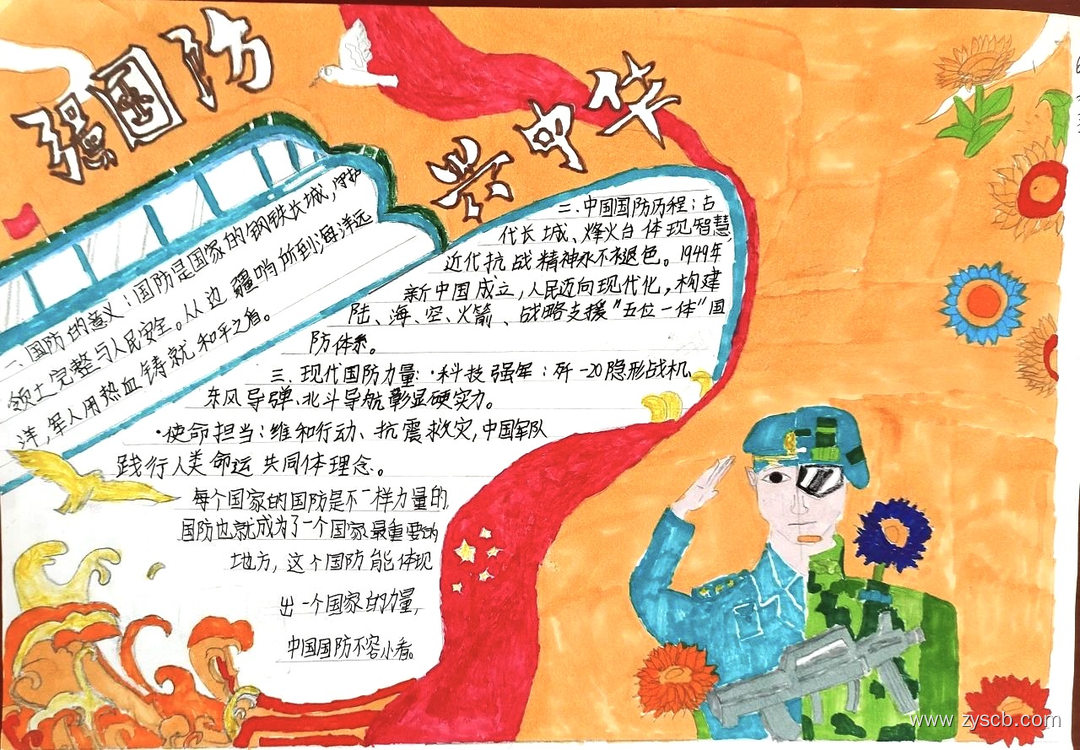 强国防
兴中华
一、国防的意义：国防是国家的钢铁长城，守护
领土完整与人民安全。从边疆哨所到海洋远
洋，军人用热血铸就和平之盾。
二、中国国防历程：古
代长城、烽火台体现智慧，
近代抗战精神永不褪色。1949年
新中国成立，人民迈向现代化，构建
陆、海、空、火箭、战略支援“五位一体”国
防体系。
三、现代国防力量：·科技强军：歼-20隐形战机、
东风导弹、北斗导航彰显硬实力。
·使命担当：维和行动、抗震救灾，中国军队
践行人类命运共同体理念。
每个国家的国防是不一样力量的，
国防也就成为了一个国家最重要的
地方，这个国防能体现
出一个国家的力量，
中国国防不容小看。
www.zyscb.com